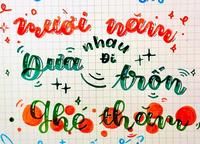 mười năm
Đưa nhau Đi trốn
Ghé thăm